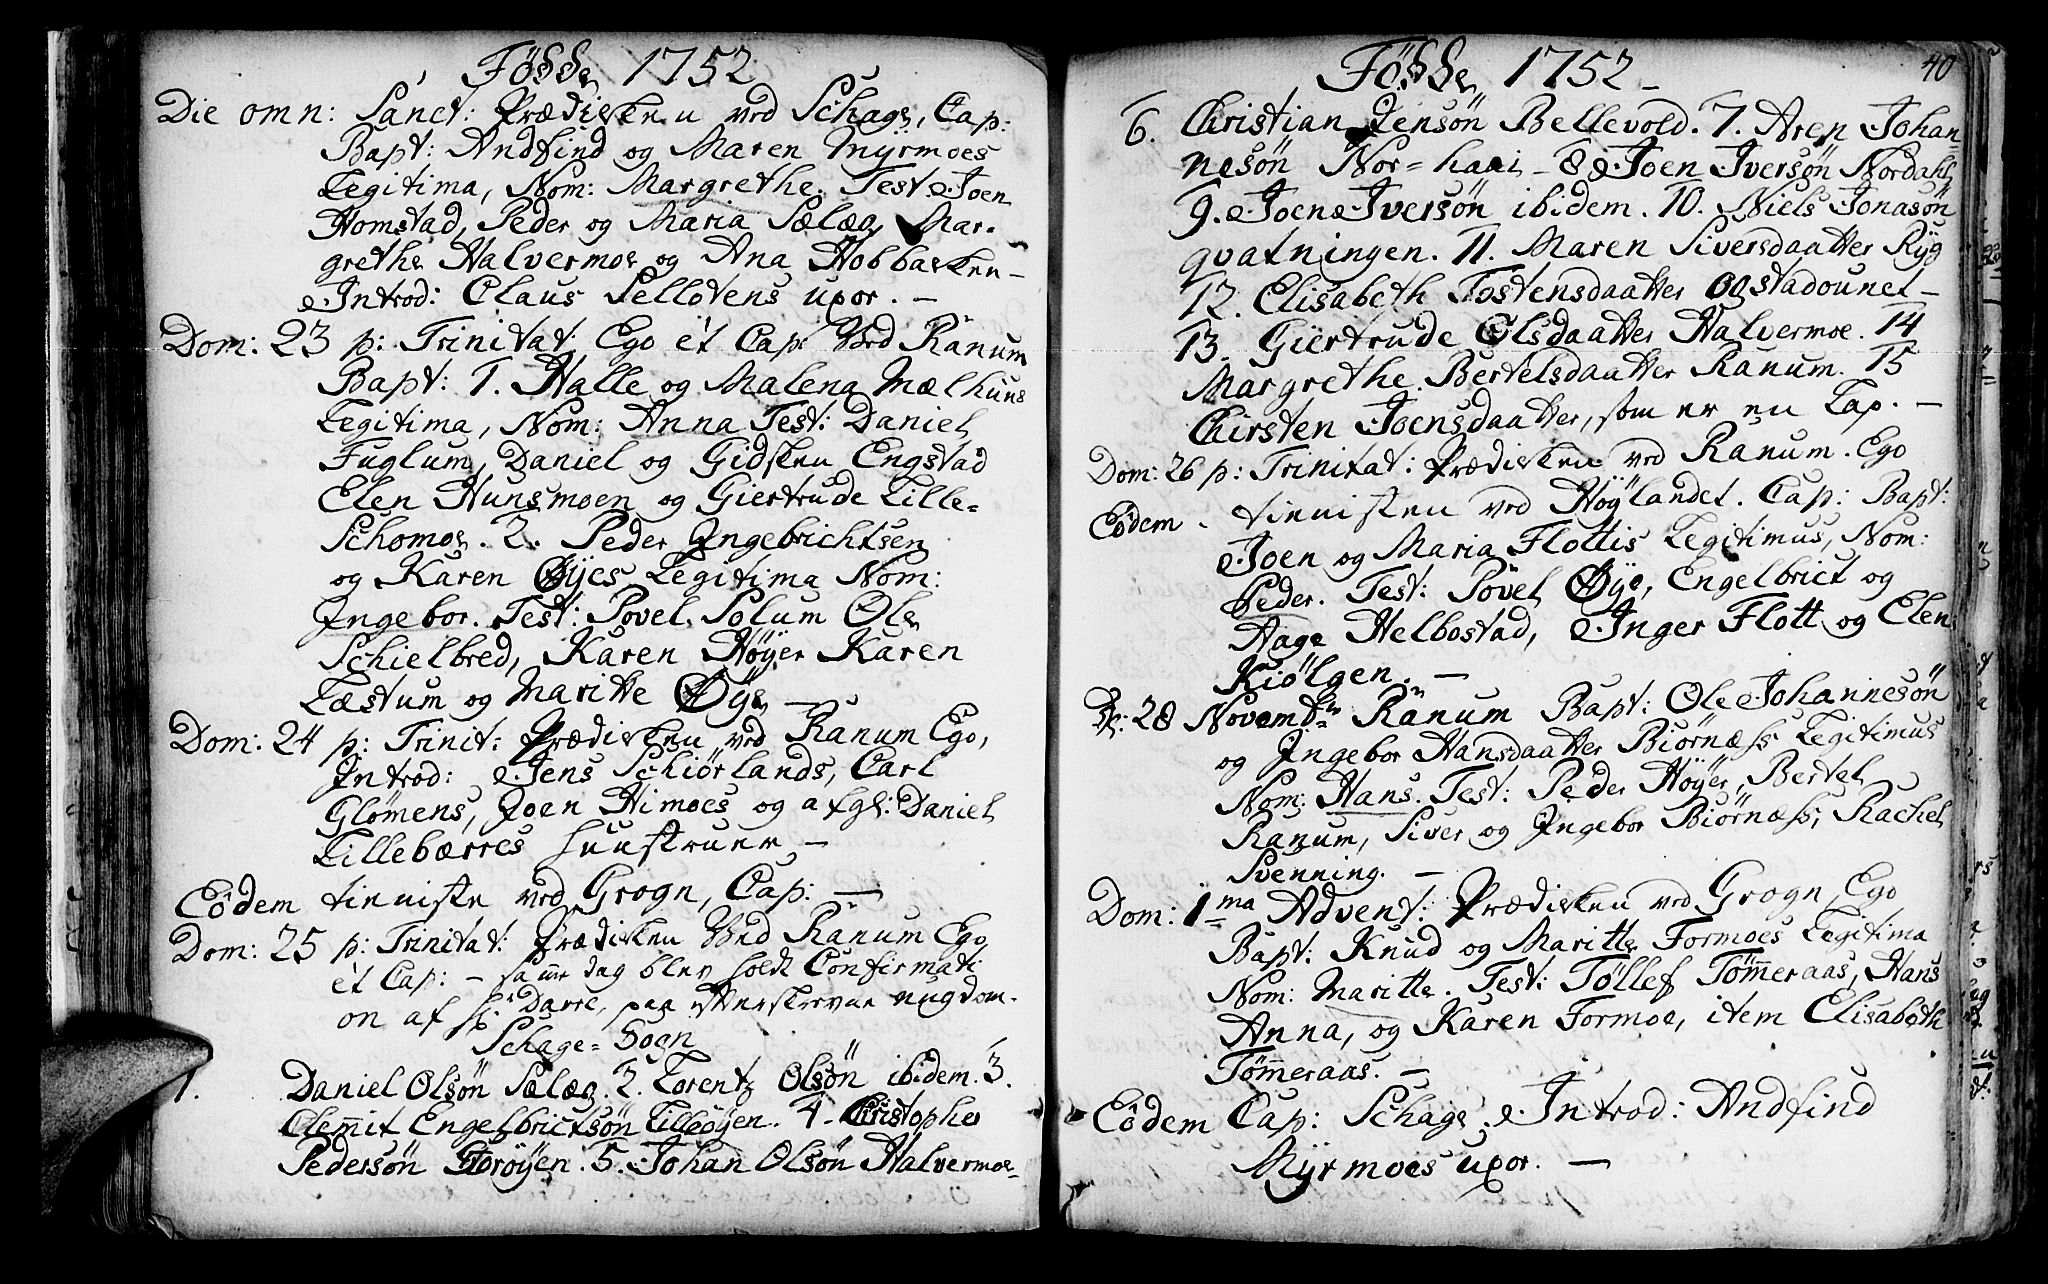 Födde 1752
Die omn: Sanct: Prædisken ved Schage, Cap:
Bapt: Andfind og Maren Myrmoes
Legitima, Nom: Margrethe. Test: Joen
Homstad, Peder og Maria Sælæg, Mar-
grethe Halvermoe og Ana Hobbasken –
Introd: Claus Selløtens uxor. –
Dom: 23 p: Trinitat: Ego et Cap: Ved Ranum
Bapt: 1. Halle og Malena Mælhuus
Legitima, Nom: Anna Test: Daniel
Fuglum, Daniel og Gidsken Engstad
Elen Hunsmoen og Giertrude Lille-
Schomoe. 2. Peder Ingebrichtsen
og Karen Øyes Legitima Nom:
Ingebor. Test: Povel Solum Ole
Schielbred, Karen Høyer Karen
Læstum og Maritte Øye –
Dom: 24 p: Trinit: Prædisken ved Ranum Ego,
Introd: Jens Schiörlands, Carl
Glømens, Joen Himoes og afgl: Daniel
Lillebærres huustruer –
Eodem tieniste ved Grogn, Cap: –
Dom: 25 p: Trinitat: Prædisken Ved Ranum Ego
et Cap: – samme dag blev holdt Confirmati
on af Hr Darre, paa efterskrevne ungdom.
Schage-Sogn
1. Daniel Olsön Sælæg. 2. Lorentz Olsön ibidem. 3.
Clemit Engelbrictsön Lilleøyen. 4. Christopher
Pedersön Storöyen. 5. Johan Olsön Halvermoe–
40
Födde 1752 –
6. Christian Jensön Bellevold. 7. Aren Johan-
nesön Nor-haai – 8 Joen Iversön Nordahl
9. Joen Iversön ibidem. 10. Niels Jonasön
qvatningen. 11. Maren Siversdaatter Ryg
12. Elisabeth Tostensdaatter Ogstadounet –
13. Giertrude Olsdaatter Halvermoe. 14
Margrethe Bertelsdaatter Ranum. 15
Chirsten Joensdaatter, som er en Lap. –
Dom: 26 p: Trinitat: Prædisken ved Ranum. Ego
Eodem . tienisten ved Høylandet. Cap: Bapt:
Joen og Maria Flottis Legitimus, Nom:
Peder. Test: Povel Øye, Engelbrict og
Aage Helbostad, Inger Flott og Elen
Kiölgen. –
D: 28 Novembr Ranum Bapt: Ole Johannesön
og Ingebor Hansdaatter Biörnæss Legitimus
Nom: Hans. Test: Peder Høyer, Bertel
Ranum, Siver og Ingebor Biörnæss, Rachel
Svenning. –
Dom: 1ma Advent: Prædisken ved Grogn, Ego
Bapt: Knud og Maritte Formoes Legitima
Nom: Maritte. Test: Tøllef Tømmeraas, Hans
Anna, og Karen Formoe, item Elisabeth
Tømmeraas. –
Eodem Cap: Schage. Introd: Andfind
Myrmoes uxor. –